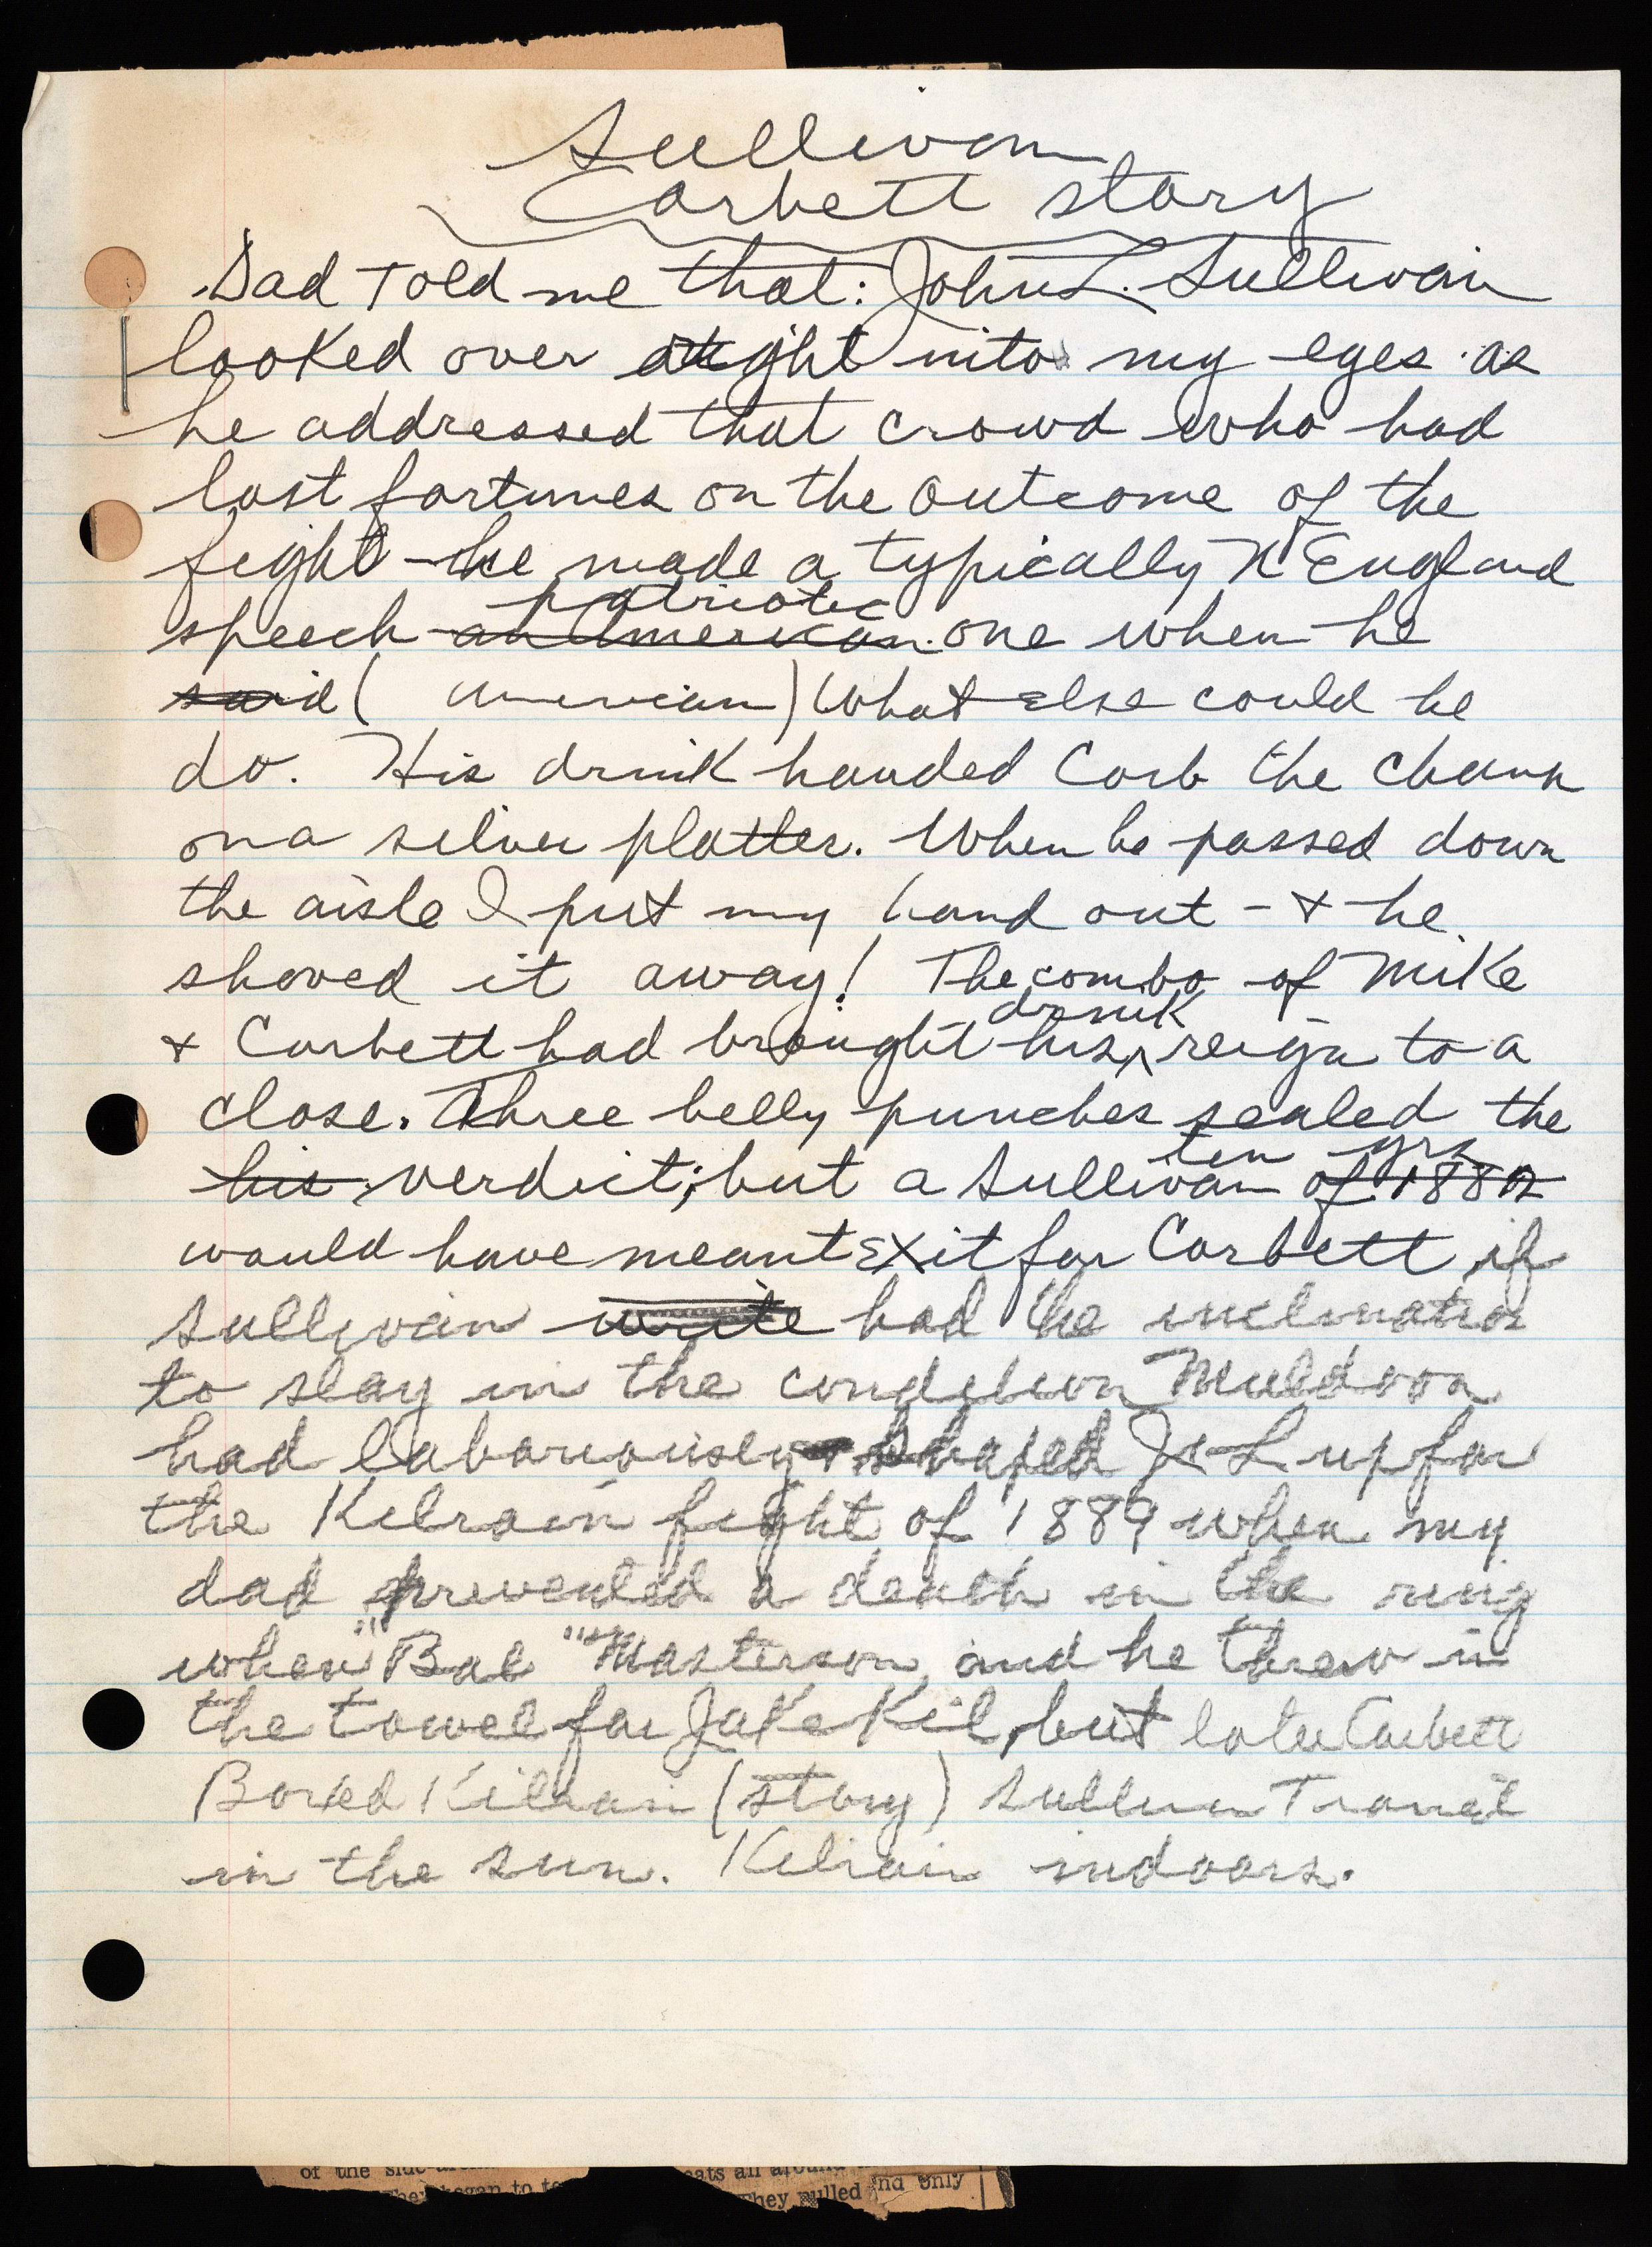 Sullivan
Corbett story
Dad Told me that: John L. Sullivan
looked over right into my eyes as
he addressed that crowd who had
lost fortunes on the outcome of the
fight - he made a typically N England
patriotic
speech an American one when he
said ( American) What else could he
do. His drink handed Corb the cham
on a silver platter. When he passed down
the aisle I put my hand out - & he
shoved it away! The combo of Mike
drink
& Corbett had brought his ^ reign to a
close. Three belly punches sealed the
ten yrs
his verdict; but a Sullivan of 1882
would have meant exit for Corbett, if
Sullivan write had the inclination
to stay in the condition Muldoon
had laboriously shaped J L up for
the Kilrain fight of 1889 when my
dad prevented a death in the ring
when "Bat" Masterson and he threw in
the towel for Jake Kil, but later Corbett
Boxed Kilrain (story) Sullivan Train'd
in the sun. Kilrain indoors.
of the side
began to
eats all around
They pulled
nd only